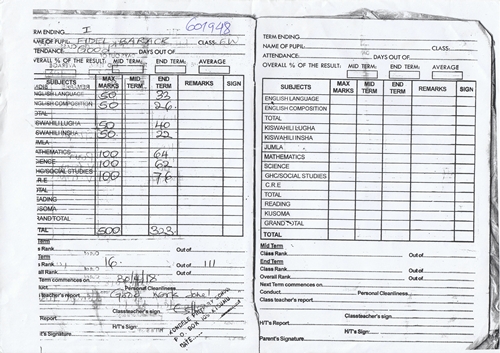 601948
RM ENDING: I
ME OF PUPIL: FIDEL BARACK CLASS: EW
TENDANCE: GOOD DAYS OUT OF
VERALL % OF THE RESULT: MID TERM: END TERM: AVERAGE
SUBJECTS MAX MARKS MID TERM END TERM REMARKS SIGN
NGLISH LANGUAGE 50 32
NGLISH COMPOSITION 50 26
SWAHILI LUGHA 50 40
SWAHILI INSHA 50 22
MLA
THEMATICS 100 64
IENCE 100 62
HG/SOCIAL STUDIES 100 76
R.E
TAL
EADING
USOMA
RAND TOTAL
OTAL 500 323
Term
s Rank. Out of
Term
s Rank. 16 Out of 111
all Rank. Out of
Term commences on 30/4/18
uct. Personal Cleanliness
teacher's report Good work
Classteacher's sign.
Report.
H/T's Sign:
nt's Signature
P. O. BOX
TERM ENDING:
NAME OF PUPIL: CLASS:
ATTENDANCE: DAYS OUT OF
OVERALL % OF THE RESULT: MID TERM: END TERM: AVERAGE
SUBJECTS MAX MARKS MID TERM END TERM REMARKS SIGN
ENGLISH LANGUAGE
ENGLISH COMPOSITION
TOTAL
KISWAHILI LUGHA
KISWAHILI INSHA
JUMLA
MATHEMATICS
SCIENCE
GHC/SOCIAL STUDIES
C.R.E
TOTAL
READING
KUSOMA
GRAND TOTAL
TOTAL
Mid Term
Class Rank. Out of
End Term
Class Rank. Out of
Overall Rank Out of
Next Term commences on
Conduct. Personal Cleanliness
Class teacher's report
Classteacher's sign.
H/T's Report.
H/T's Sign:
Parent's Signature